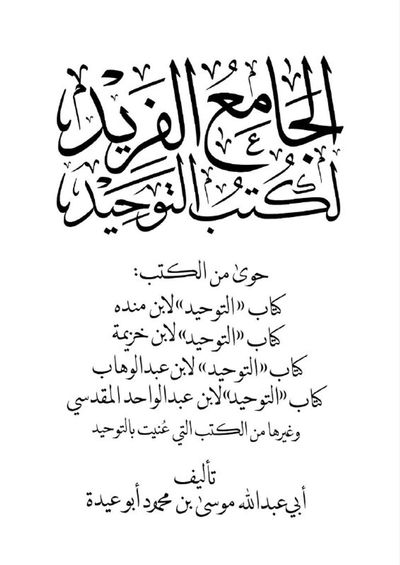 الجَامِعُ الفَرِيْد
لكُتُبُ التَوحِيْد
حوىٰ من الكتب:
كتاب «التوحيد» لابن منده
كتاب «التوحيد» لابن خزيمة
كتاب «التوحيد» لابن عبدالوهاب
كتاب «التوحيد» لابن عبدالواحد المقدسي
وغيرها من الكتب التي عُنيت بالتوحيد
تأليف
أبي عبدالله موسىٰ بن محمود أبو عيدة